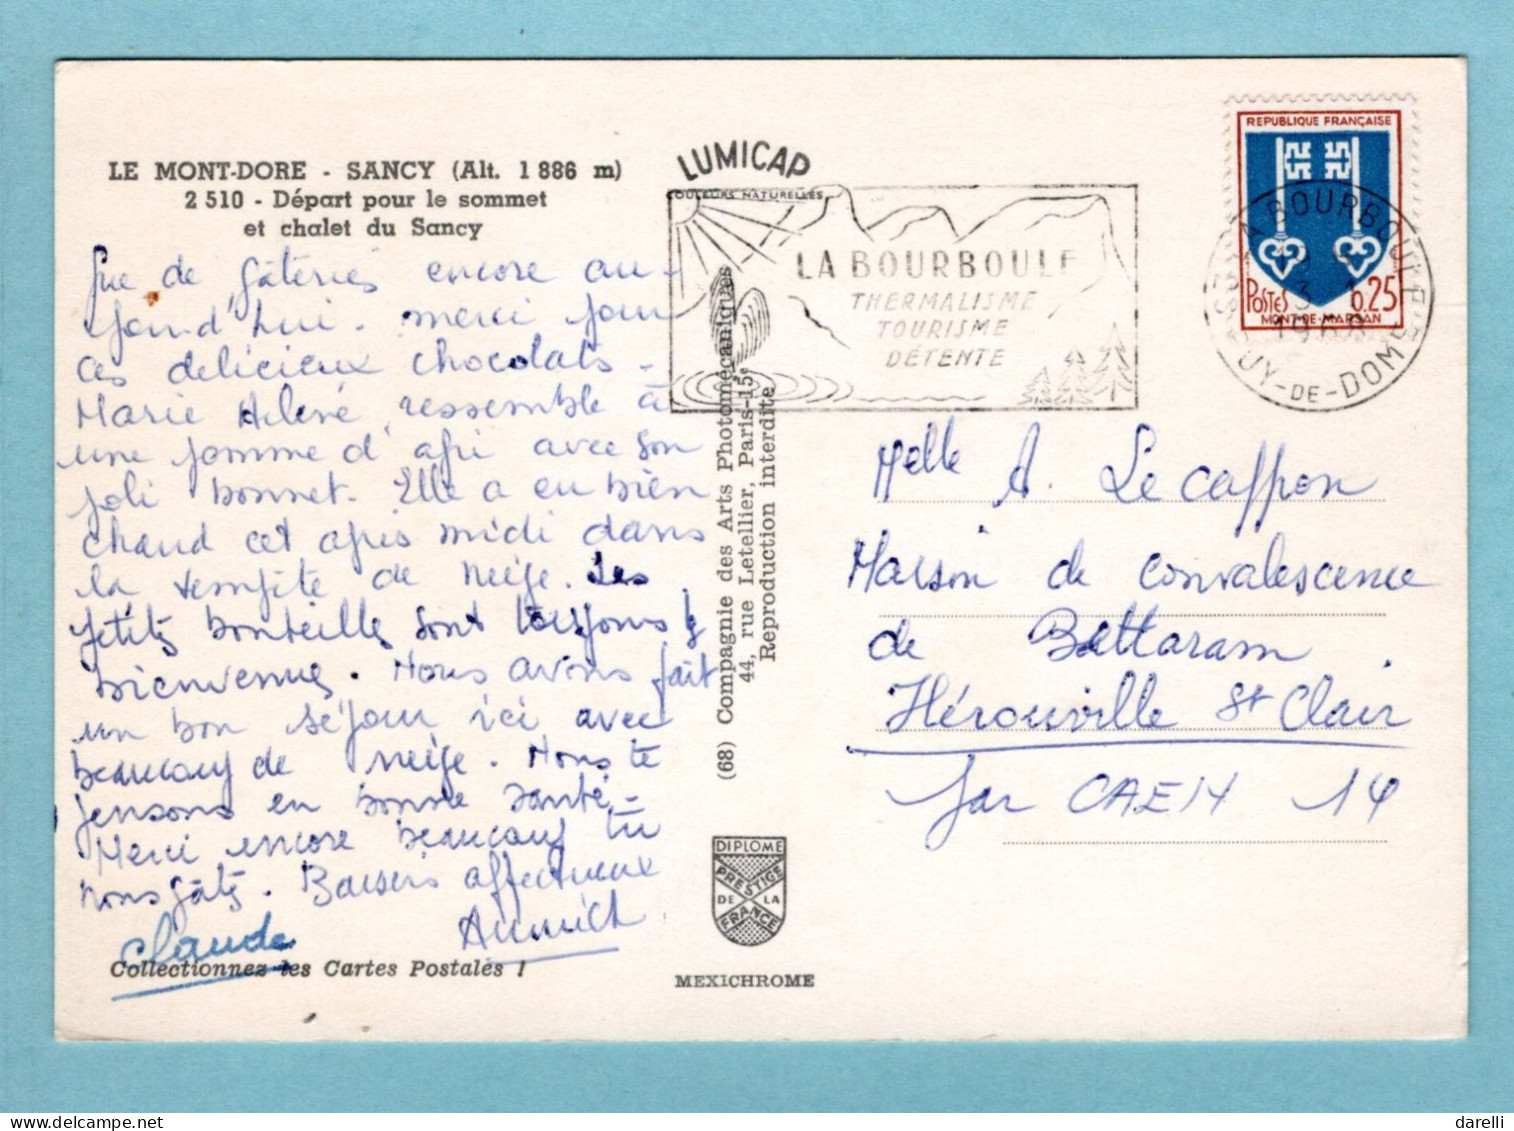 LE MONT-DORE - SANCY (Alt. 1 886 m)
2 510 - Départ pour le sommet
et chalet du Sancy
Que de gâteries encore au-
jourd'hui. Merci pour
ces delicieux chocolats.
Marie Hélène ressemble à
une pomme d'api avec son
joli bonnet. Elle a eu bien
chaud cet après midi dans
la tempête de neige. Les
petites bouteilles sont toujours
bienvenues. Nous avons fait
un bon séjour ici avec
beaucoup de neige. Nous te
pensons en bonne santé.
Merci encore beaucoup tu
nous gâtes. Baisers affectueux
Claude
Annick
Collectionnez les Cartes Postales !
LUMICAP
COULEURS NATURELLES
LA BOURBOULE
THERMALISME
TOURISME
DÉTENTE
(68) Compagnie des Arts Photomécaniques
44, rue Letellier, Paris-15e
Reproduction interdite
DIPLOME
PRESTIGE
DE LA
FRANCE
MEXICHROME
REPUBLIQUE FRANÇAISE
POSTES 0.25
MONT-DE-MARSAN
LA BOURBOULE
PUY-DE-DOME
Melle A. Le Caffron
Maison de convalescence
de Bettaram
Hérouville St Clair
par CAEN 14
darelli